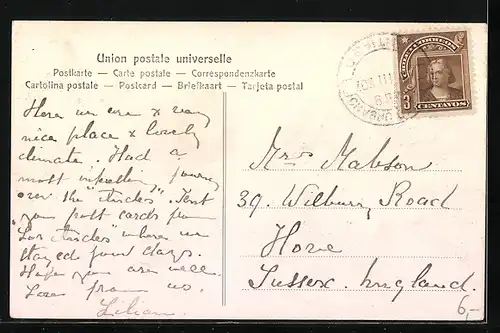 Union postale universelle
Postkarte — Carte postale — Correspondenzkarte
Cartolina postale — Postcard — Briefkaart — Tarjeta postal
CHILE CORREOS
3 CENTAVOS
Here we are x very
nice place x lovely
climate. Had a
most journey
over the "Andes". Sent
you post cards from
"Los Andes" where we
stayed four days.
Hope you are well.
Love from us.
Lilian.
Mrs Mabson
39. Wilbury Road
Hove
Sussex. England.
6,-